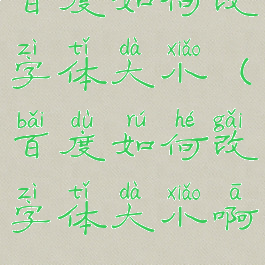 百度如何改
zì tǐ dà xiǎo
字体大小（
bǎi dù rú hé gǎi
百度如何改
zì tǐ dà xiǎo ā
字体大小啊